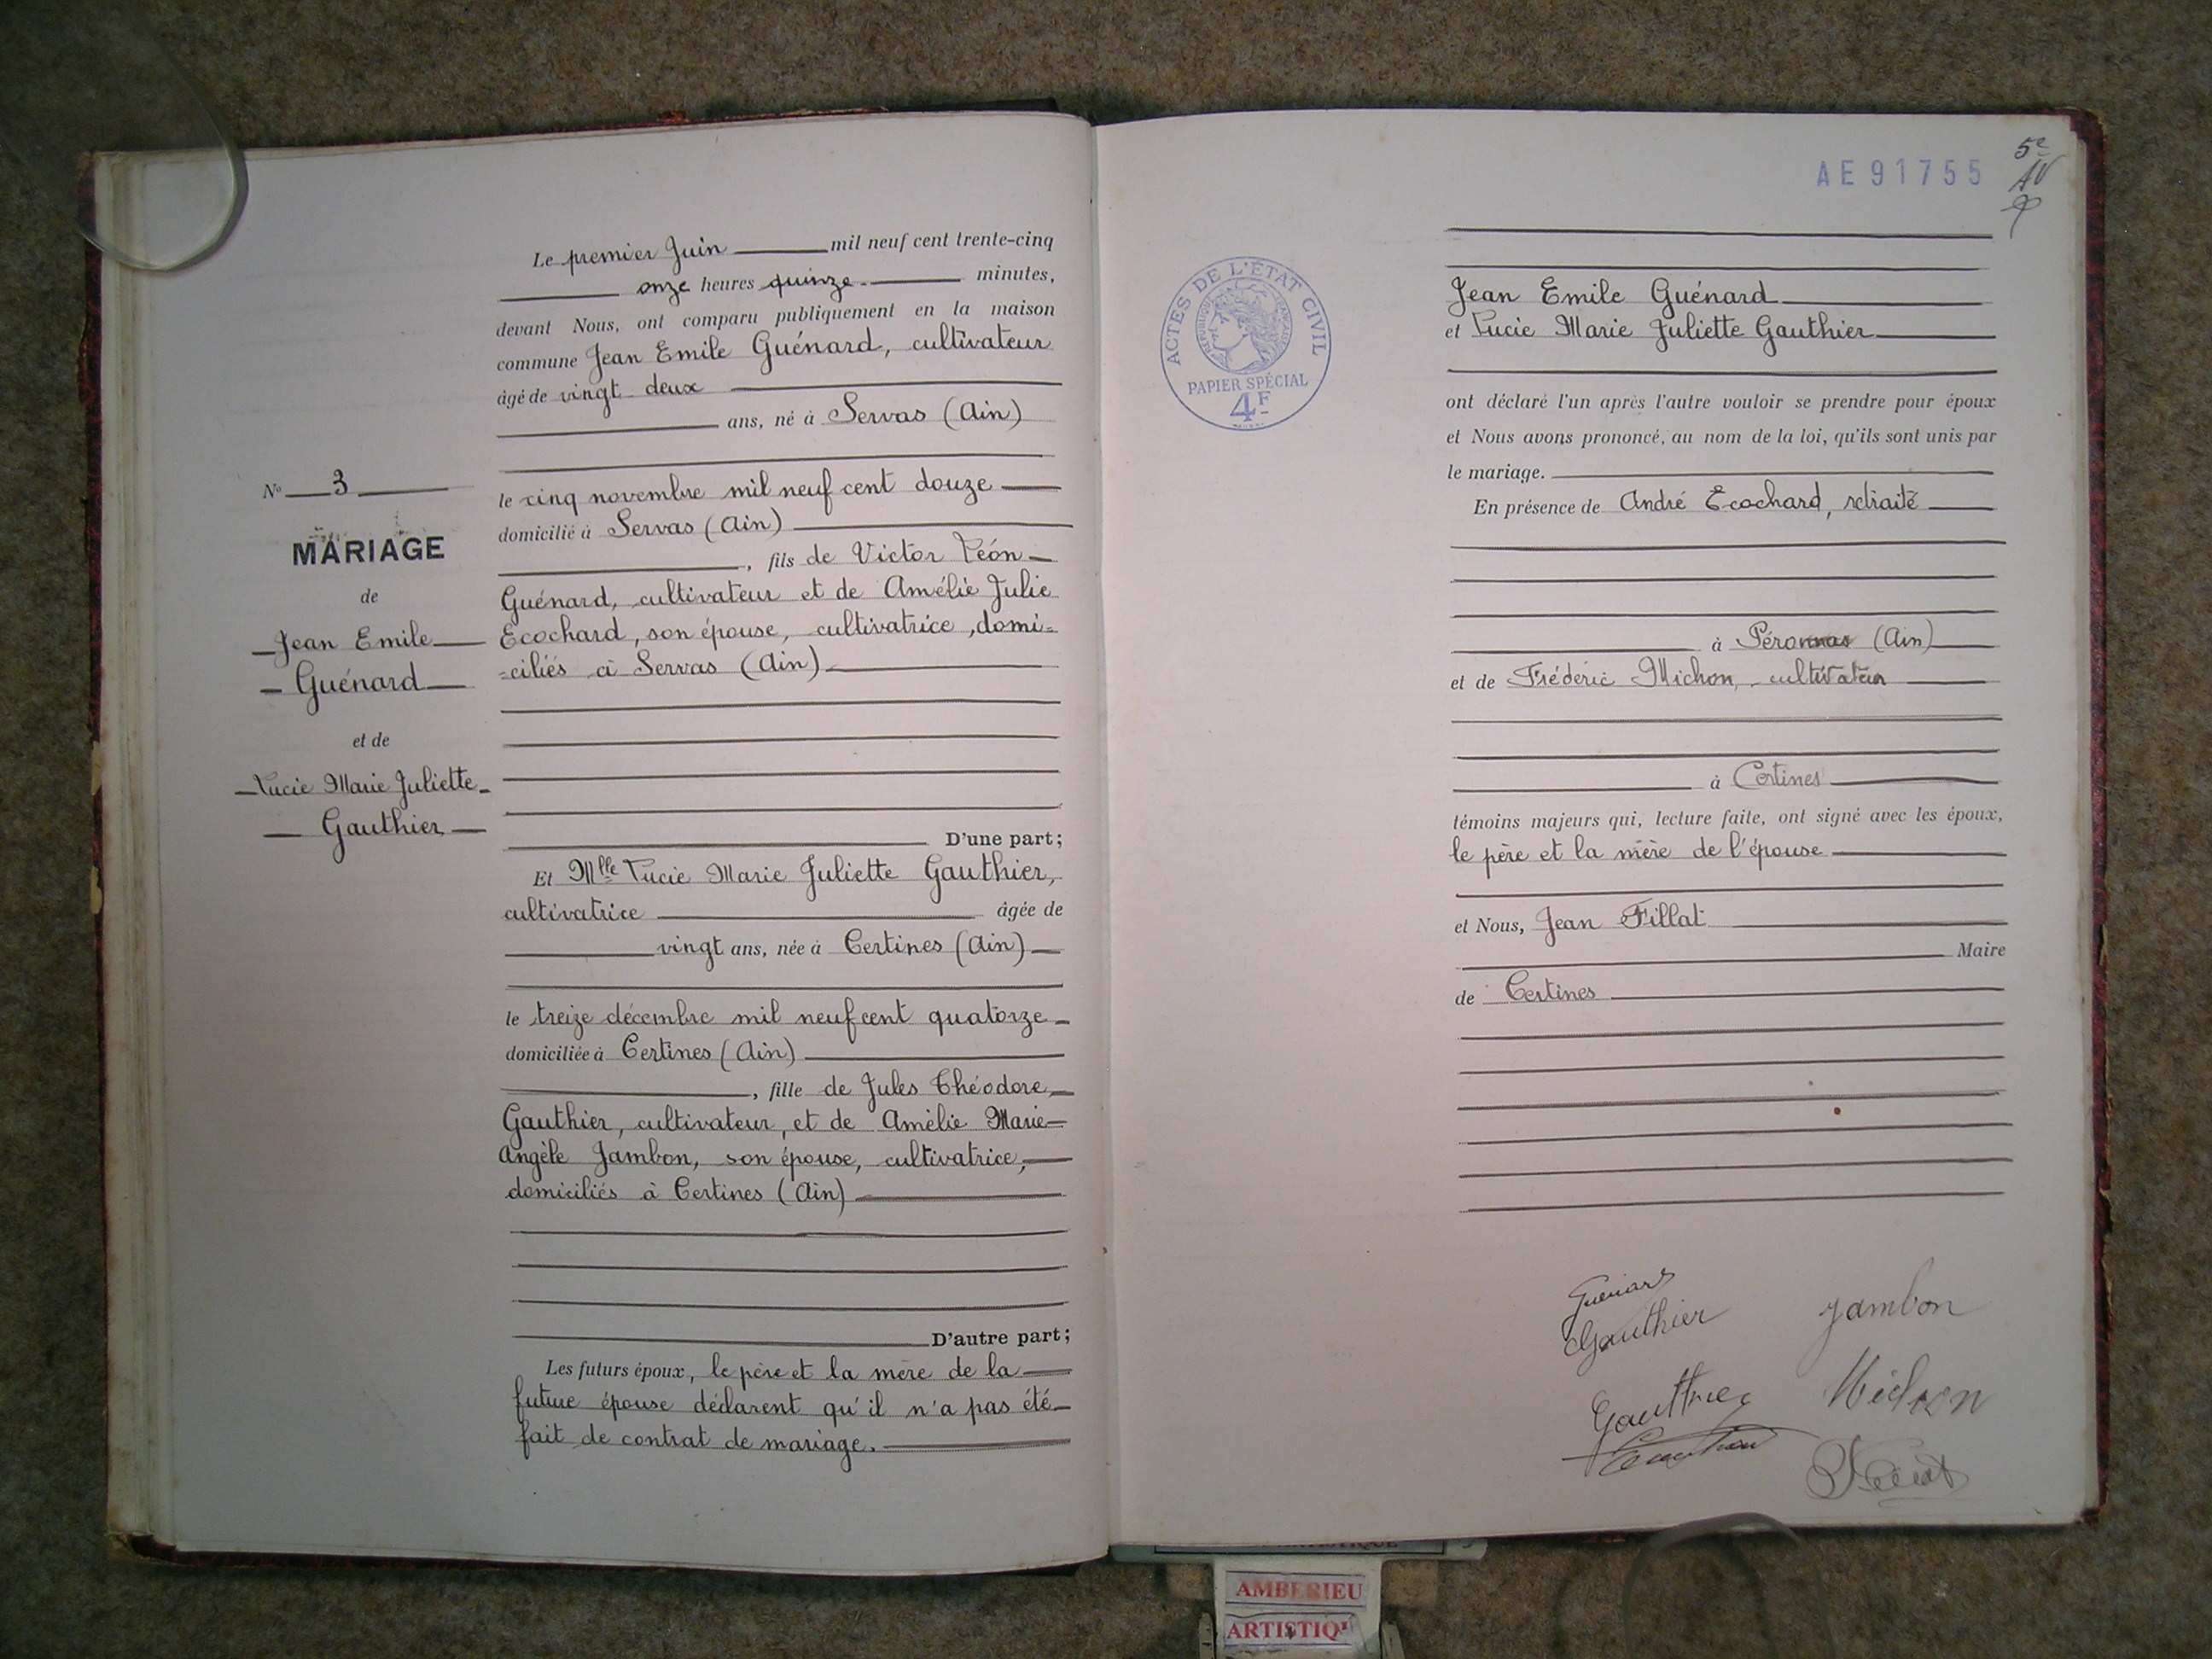 Le premier Juin mil neuf cent trente-cinq
onze heures quinze minutes,
devant Nous, ont comparu publiquement en la maison
commune Jean Emile Guénard, cultivateur
âgé de vingt deux
ans, né à Servas (Ain)
le cinq novembre mil neuf cent douze
domicilié à Servas (Ain)
, fils de Victor Léon
Guénard, cultivateur et de Amélie Julie
Ecochard, son épouse, cultivatrice, domi=
=ciliés à Servas (Ain)
D'une part;
Et Mlle Lucie Marie Juliette Gauthier,
cultivatrice âgée de
vingt ans, née à Certines (Ain)
le treize décembre mil neuf cent quatorze
domiciliée à Certines (Ain)
, fille de Jules Théodore
Gauthier, cultivateur, et de Amélie Marie
Angèle Jambon, son épouse, cultivatrice,
domiciliés à Certines (Ain)
D'autre part;
Les futurs époux, le père et la mère de la
future épouse déclarent qu'il n'a pas été
fait de contrat de mariage.
N° 3
MARIAGE
de
Jean Emile
Guénard
et de
Lucie Marie Juliette
Gauthier
AE91755
5e
ACTES DE L'ÉTAT CIVIL
RÉPUBLIQUE FRANÇAISE
PAPIER SPÉCIAL
4F
Jean Emile Guénard
et Lucie Marie Juliette Gauthier
ont déclaré l'un après l'autre vouloir se prendre pour époux
et Nous avons prononcé, au nom de la loi, qu'ils sont unis par
le mariage.
En présence de André Ecochard, retraité
à Péronnas (Ain)
et de Frédéric Michon, cultivateur
à Certines
témoins majeurs qui, lecture faite, ont signé avec les époux,
le père et la mère de l'épouse
et Nous, Jean Fillat
Maire
de Certines
Guénard
Gauthier Jambon
Gauthier Michon
AMBERIEU
ARTISTIQU